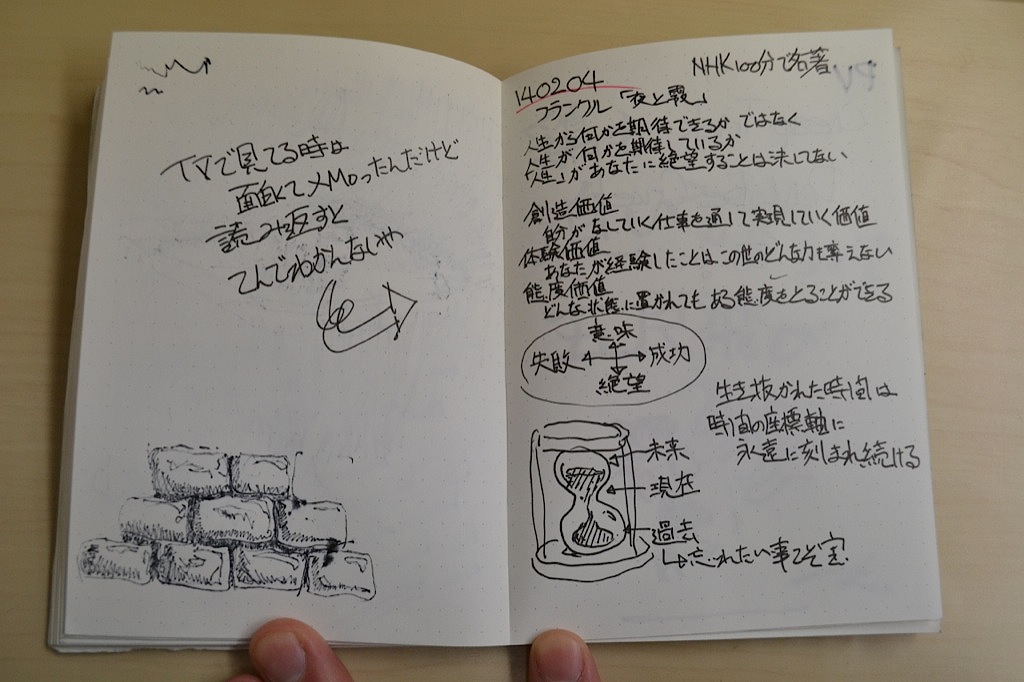 TVで見てる時は
面白くてメMoったんだけど
読み返すと
てんでわかんないや
NHK100分で名著
140204
フランクル「夜と霧」
人生から何かを期待できるか ではなく
人生が何かを期待しているか
「人生」があなたに絶望することは決してない
創造価値
自分がなしていく仕事を通して実現していく価値
体験価値
あなたが経験したことはこの世のどんな力も奪えない
態度価値
どんな状態に置かれてもある態度をとることができる
意味
失敗 成功
絶望
生き抜かれた時間は
時間の座標軸に
永遠に刻まれ続ける
未来
現在
過去
忘れたい事こそ宝